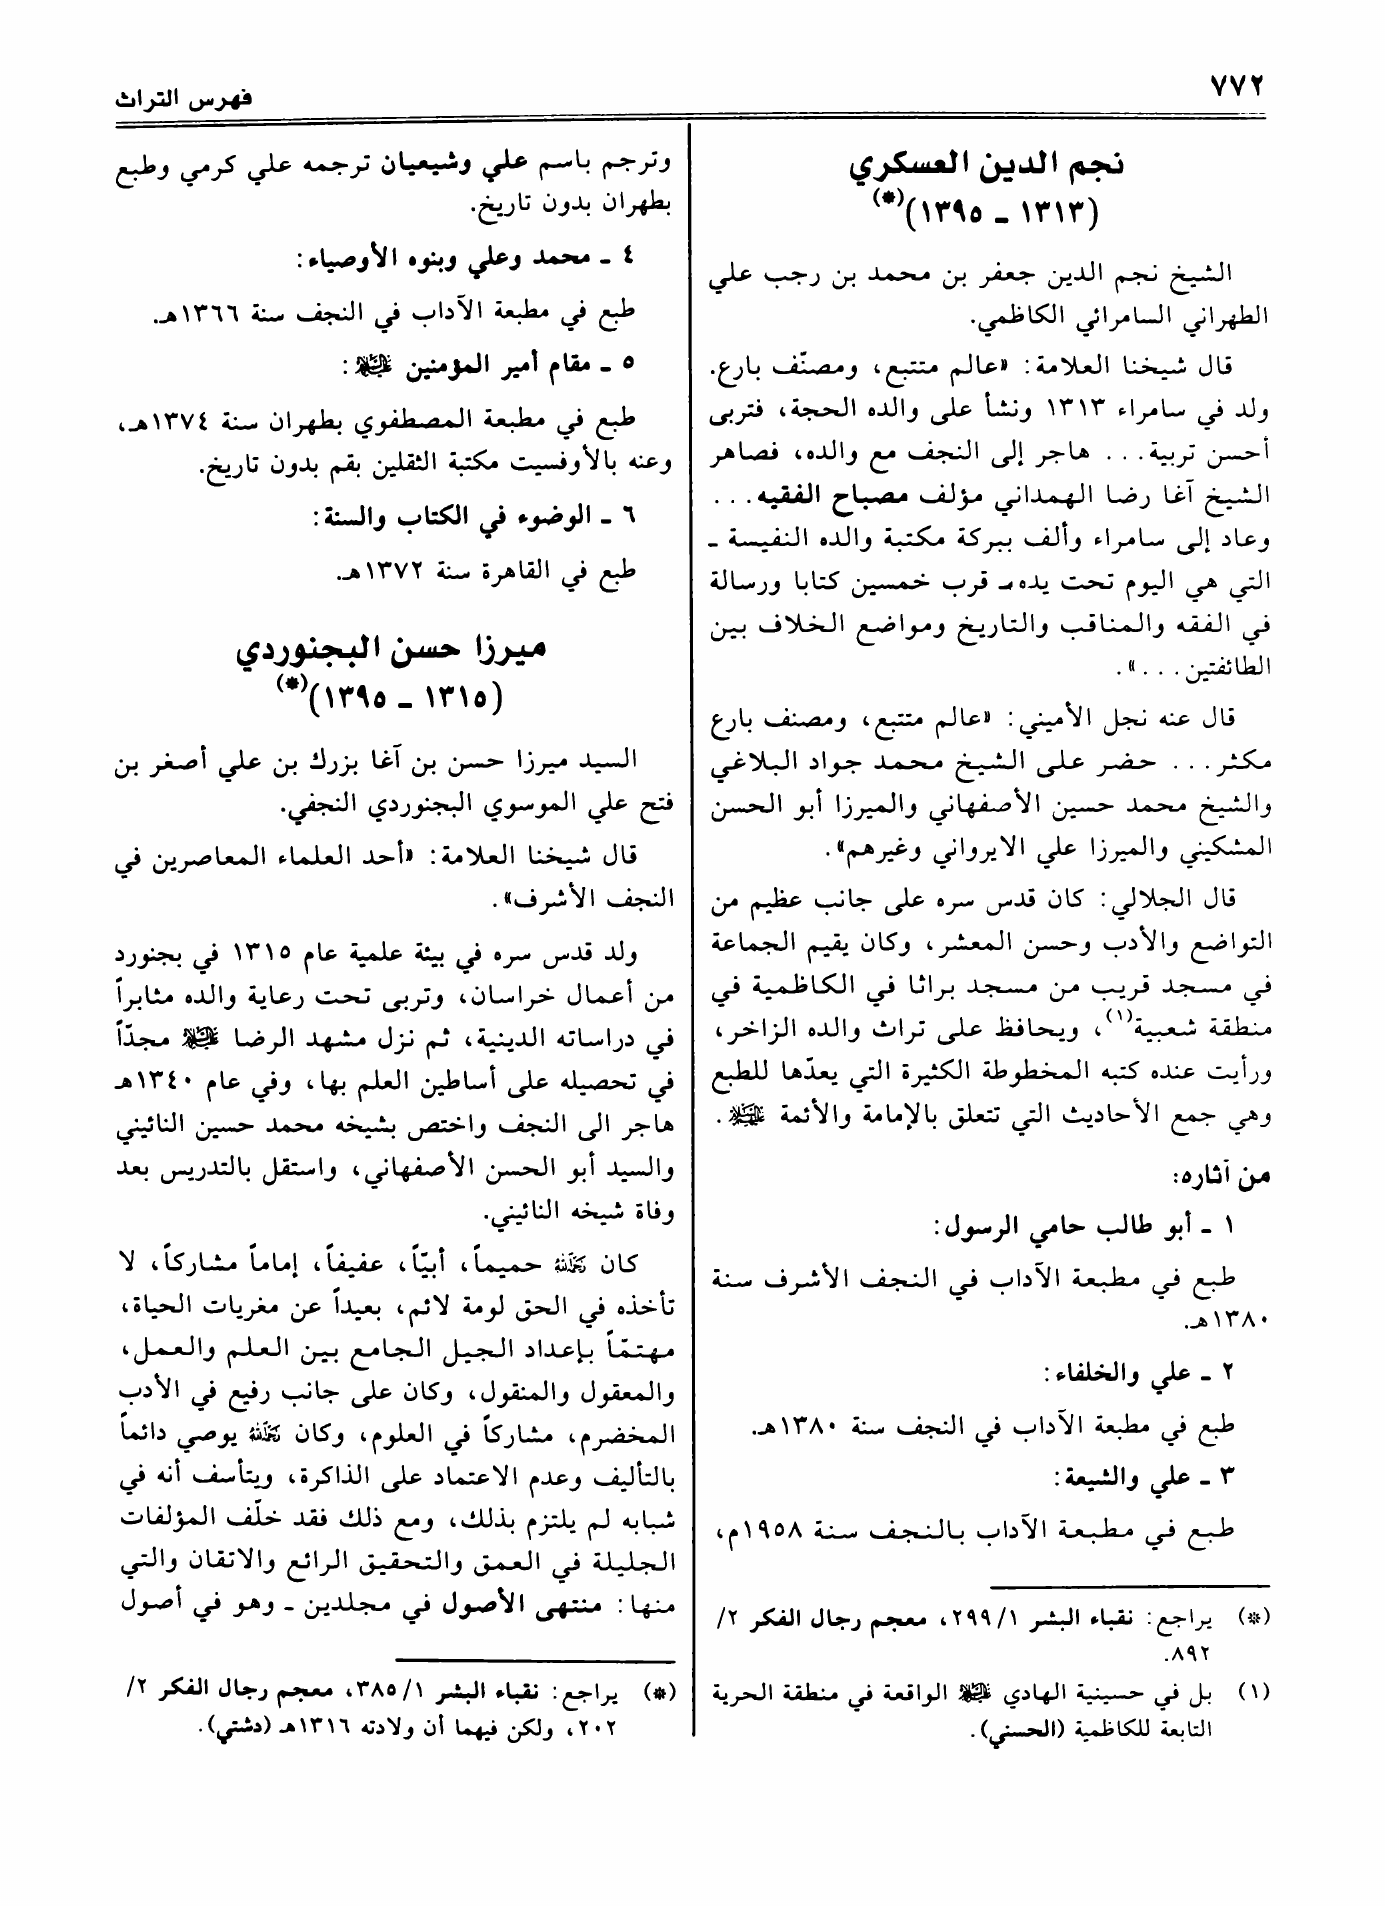 ٧٧٢
فهرس التراث
نجم الدين العسكري
(١٣١٣ ـ ١٣٩٥)(*)
الشيخ نجم الدين جعفر بن محمد بن رجب علي
الطهراني السامرائي الكاظمي.
قال شيخنا العلامة: «عالم متتبع، ومصنّف بارع.
ولد في سامراء ١٣١٣ ونشأ على والده الحجة، فتربى
أحسن تربية... هاجر إلى النجف مع والده، فصاهر
الشيخ آغا رضا الهمداني مؤلف مصباح الفقيه...
وعاد إلى سامراء وألف ببركة مكتبة والده النفيسة ـ
التي هي اليوم تحت يده ـ قرب خمسين كتابا ورسالة
في الفقه والمناقب والتاريخ ومواضع الخلاف بين
الطائفتين...».
قال عنه نجل الأميني: «عالم متتبع، ومصنف بارع
مكثر... حضر على الشيخ محمد جواد البلاغي
والشيخ محمد حسين الأصفهاني والميرزا أبو الحسن
المشكيني والميرزا علي الايرواني وغيرهم».
قال الجلالي: كان قدس سره على جانب عظيم من
التواضع والأدب وحسن المعشر، وكان يقيم الجماعة
في مسجد قريب من مسجد براثا في الكاظمية في
منطقة شعبية(١)، ويحافظ على تراث والده الزاخر،
ورأيت عنده كتبه المخطوطة الكثيرة التي يعدّها للطبع
وهي جمع الأحاديث التي تتعلق بالإمامة والأئمة.
من آثاره:
١ ـ أبو طالب حامي الرسول:
طبع في مطبعة الآداب في النجف الأشرف سنة
١٣٨٠هـ.
٢ ـ علي والخلفاء:
طبع في مطبعة الآداب في النجف سنة ١٣٨٠هـ.
٣ ـ علي والشيعة:
طبع في مطبعة الآداب بالنجف سنة ١٩٥٨م،
(*) يراجع: نقباء البشر ١/ ٢٩٩، معجم رجال الفكر ٢/
٨٩٢.
(١) بل في حسينية الهادي الواقعة في منطقة الحرية
التابعة للكاظمية (الحسني).
وترجم باسم علي وشيعيان ترجمه علي كرمي وطبع
بطهران بدون تاريخ.
٤ ـ محمد وعلي وبنوه الأوصياء:
طبع في مطبعة الآداب في النجف سنة ١٣٦٦هـ.
٥ ـ مقام أمير المؤمنين:
طبع في مطبعة المصطفوي بطهران سنة ١٣٧٤هـ،
وعنه بالأوفسيت مكتبة الثقلين بقم بدون تاريخ.
٦ ـ الوضوء في الكتاب والسنة:
طبع في القاهرة سنة ١٣٧٢هـ.
ميرزا حسن البجنوردي
(١٣١٥ ـ ١٣٩٥)(*)
السيد ميرزا حسن بن آغا بزرك بن علي أصغر بن
فتح علي الموسوي البجنوردي النجفي.
قال شيخنا العلامة: «أحد العلماء المعاصرين في
النجف الأشرف».
ولد قدس سره في بيئة علمية عام ١٣١٥ في بجنورد
من أعمال خراسان، وتربى تحت رعاية والده مثابراً
في دراساته الدينية، ثم نزل مشهد الرضا مجدّاً
في تحصيله على أساطين العلم بها، وفي عام ١٣٤٠هـ
هاجر الى النجف واختص بشيخه محمد حسين النائيني
والسيد أبو الحسن الأصفهاني، واستقل بالتدريس بعد
وفاة شيخه النائيني.
كان حميماً، أبيّاً، عفيفاً، إماماً مشاركاً، لا
تأخذه في الحق لومة لائم، بعيداً عن مغريات الحياة،
مهتمّاً بإعداد الجيل الجامع بين العلم والعمل،
والمعقول والمنقول، وكان على جانب رفيع في الأدب
المخضرم، مشاركاً في العلوم، وكان يوصي دائماً
بالتأليف وعدم الاعتماد على الذاكرة، ويتأسف أنه في
شبابه لم يلتزم بذلك، ومع ذلك فقد خلّف المؤلفات
الجليلة في العمق والتحقيق الرائع والاتقان والتي
منها: منتهى الأصول في مجلدين ـ وهو في أصول
(*) يراجع: نقباء البشر ١/ ٣٨٥، معجم رجال الفكر ٢/
٢٠٢، ولكن فيهما أن ولادته ١٣١٦هـ (دشتي).